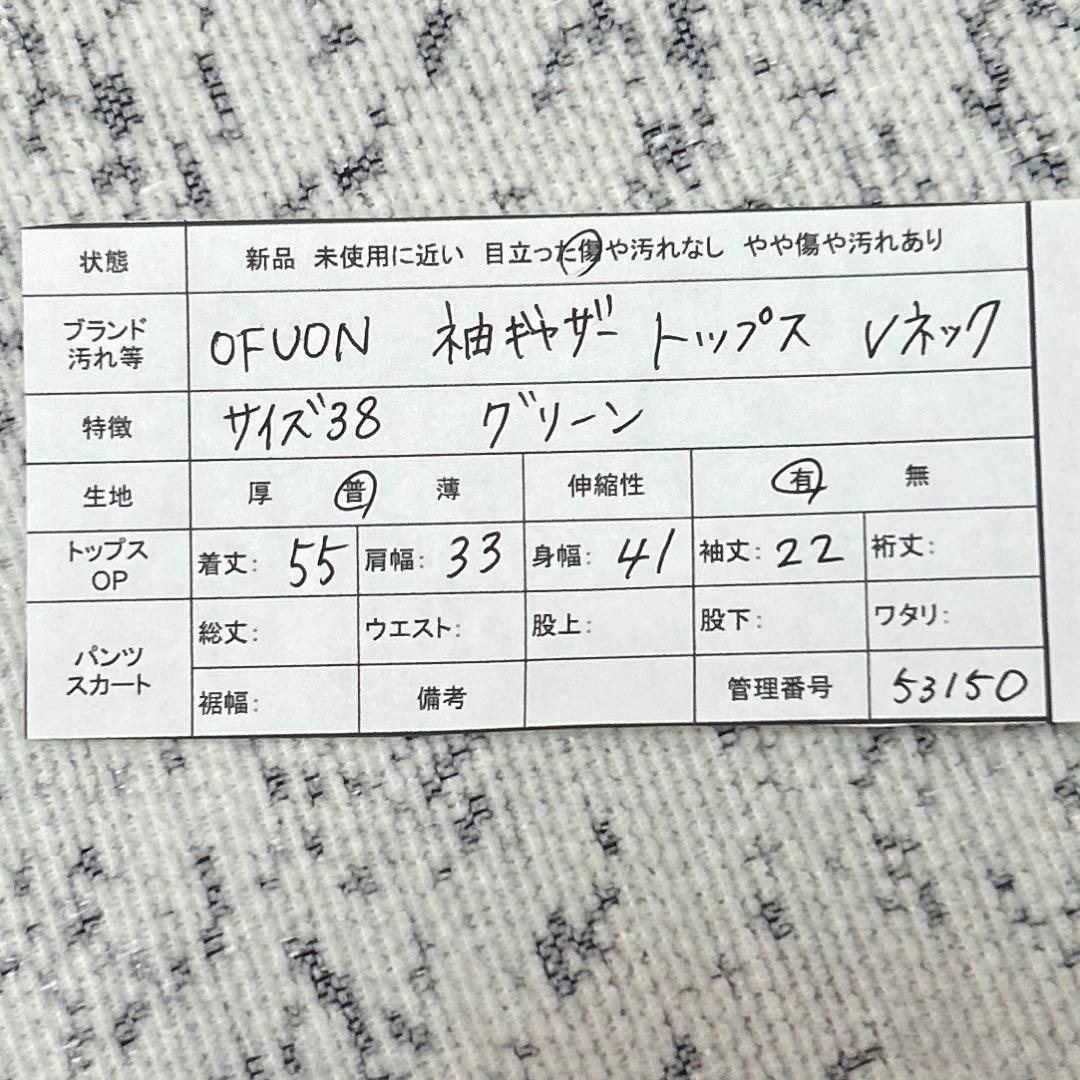 状態 新品 未使用に近い 目立った傷や汚れなし やや傷や汚れあり
ブランド
汚れ等
OFUON 袖ギャザー トップス Vネック
特徴 サイズ38 グリーン
生地 厚 普 薄 伸縮性 有 無
トップス
OP
着丈: 55 肩幅: 33 身幅: 41 袖丈: 22 裄丈:
パンツ
スカート
総丈: ウエスト: 股上: 股下: ワタリ:
裾幅: 備考 管理番号 53150